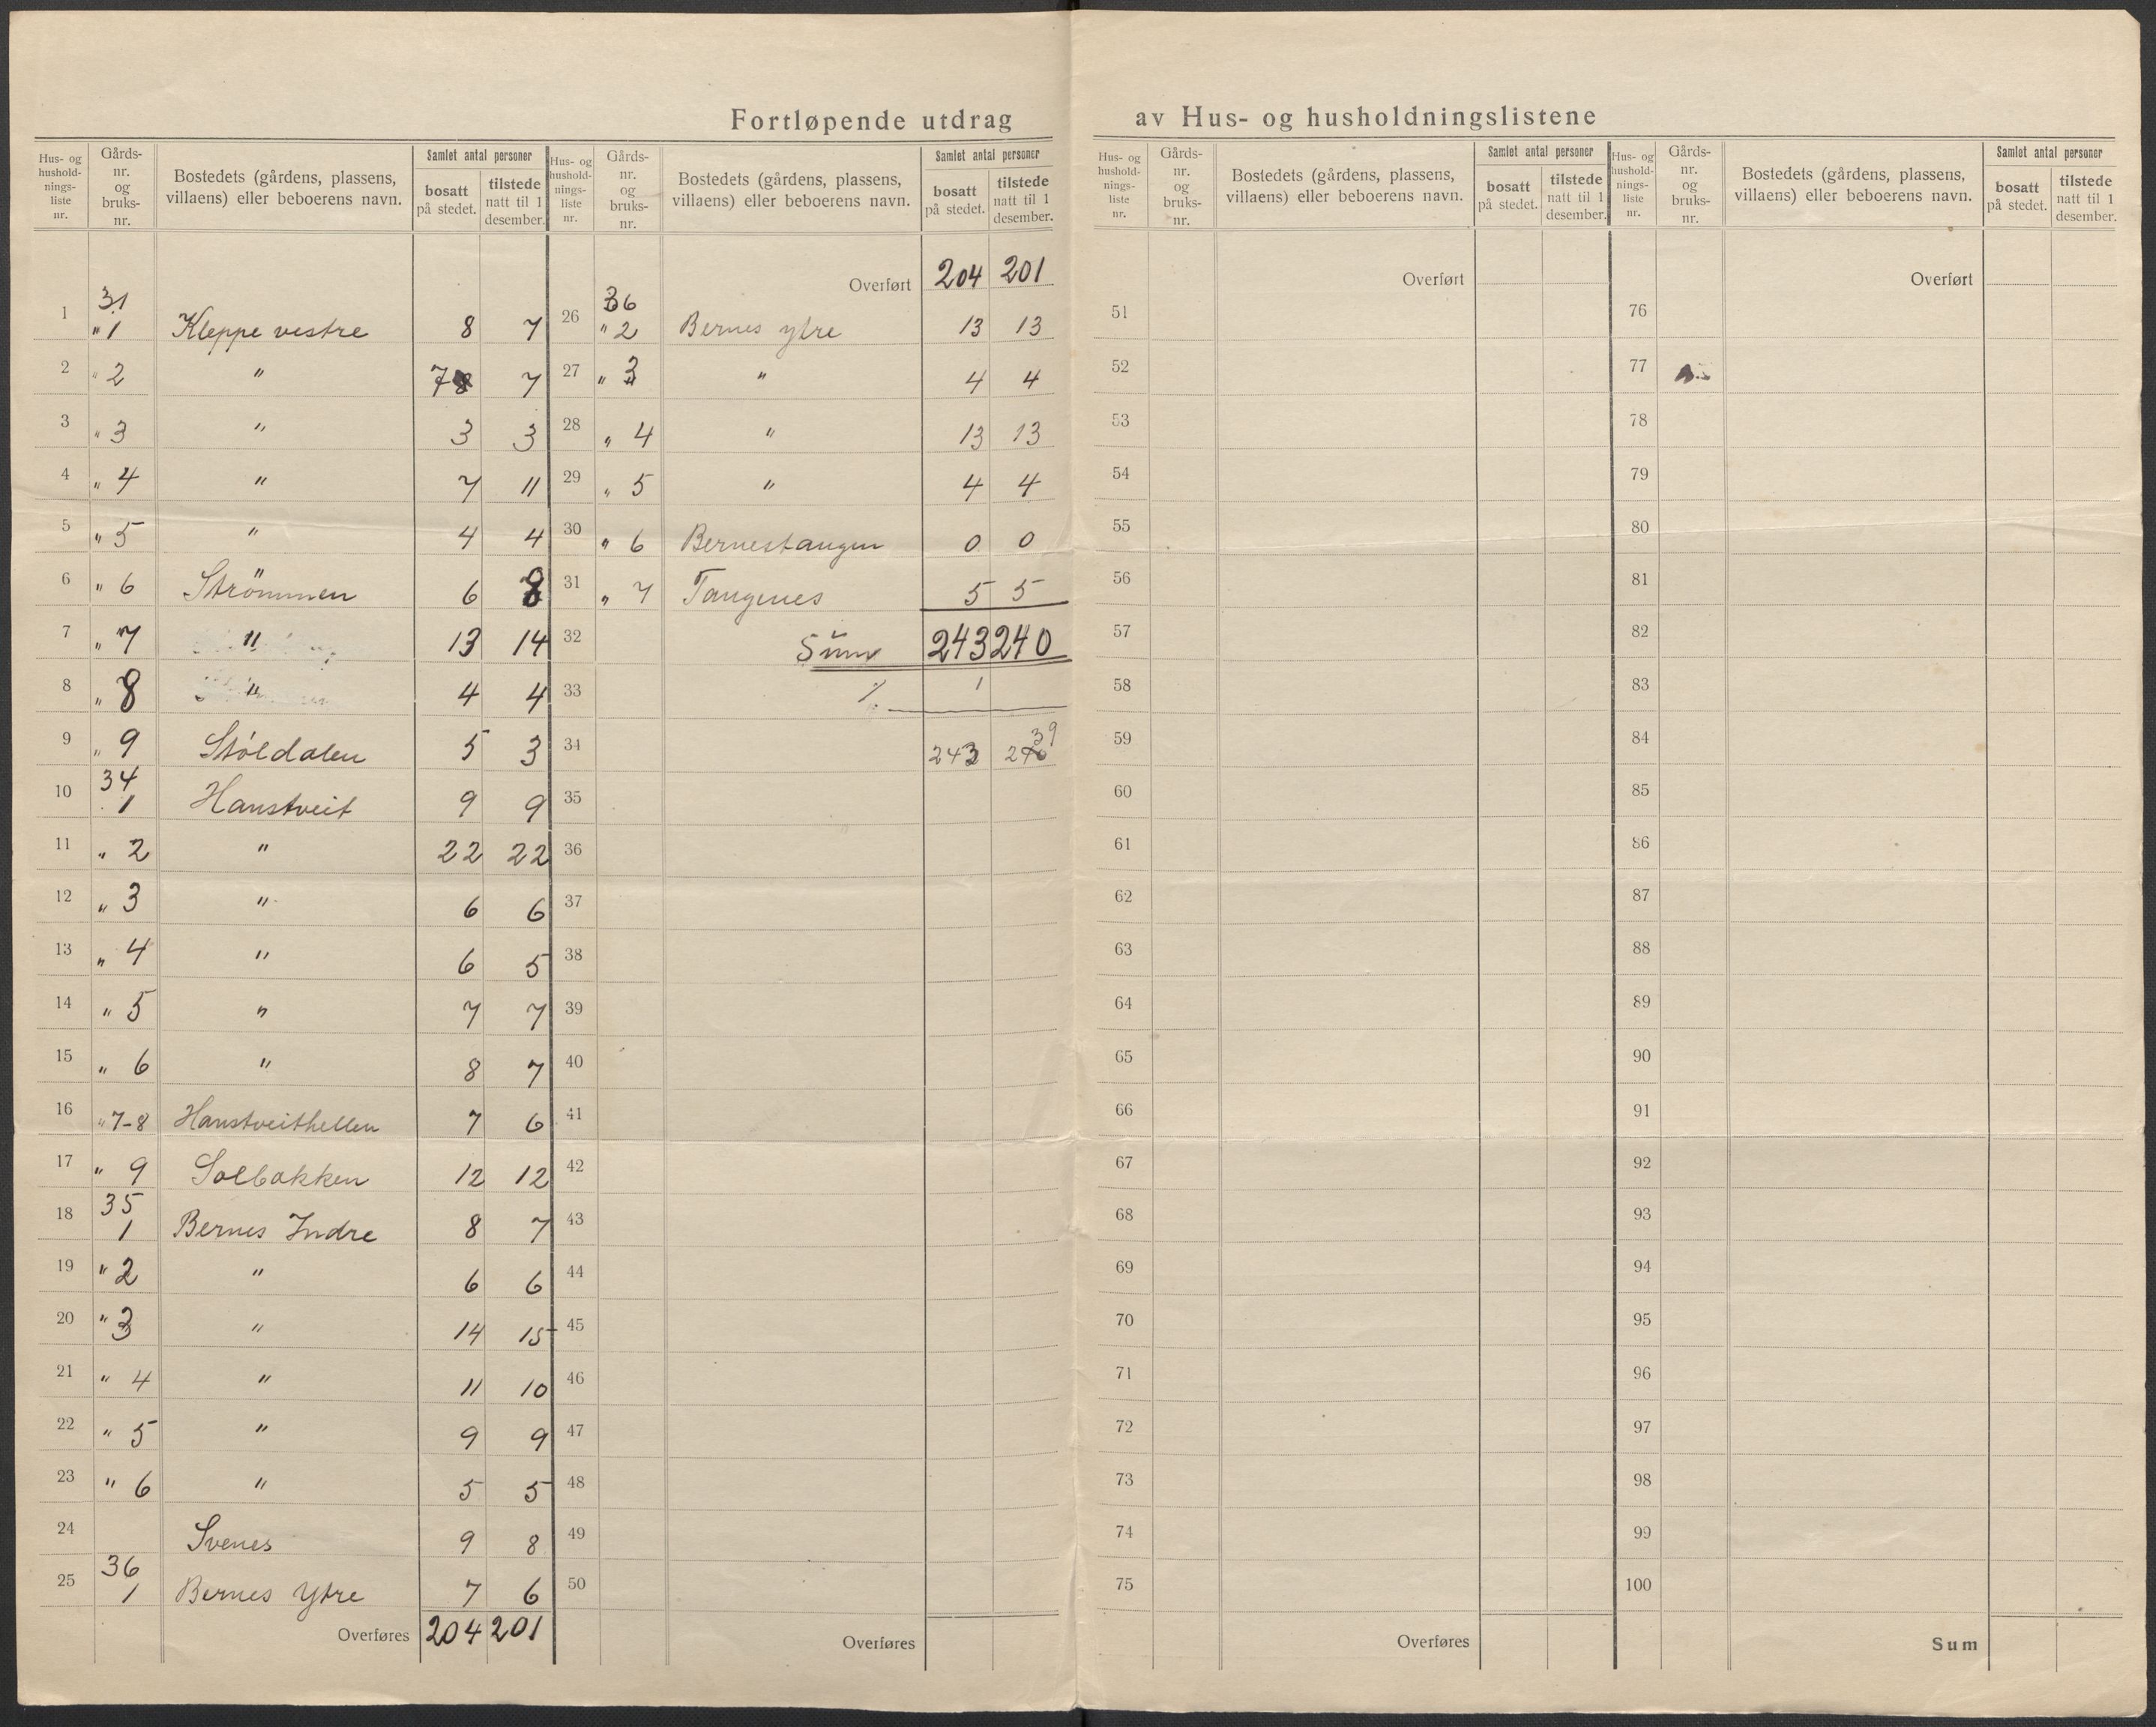 Fortløpende utdrag av Hus- og husholdningslistene
Hus- og hushold-nings-liste nr. | Gårds-nr. og bruks-nr. | Bostedets (gårdens, plassens, villaens) eller beboerens navn. | Samlet antal personer | bosatt på stedet. | tilstede natt til 1 desember.
1 31 "1 Kleppe vestre 8 7
2 " 2 " 7 7
3 " 3 " 3 3
4 " 4 " 7 11
5 " 5 " 4 4
6 " 6 Strömmen 6 8
7 " 7 " 13 14
8 " 8 " 4 4
9 " 9 Støldalen 5 3
10 34 1 Hanstveit 9 9
11 " 2 " 22 22
12 " 3 " 6 6
13 " 4 " 6 5
14 " 5 " 7 7
15 " 6 " 8 7
16 " 7-8 Hanstveithellen 7 6
17 " 9 Solbakken 12 12
18 35 1 Bernes Indre 8 7
19 " 2 " 6 6
20 " 3 " 14 15
21 " 4 " 11 10
22 " 5 " 9 9
23 " 6 " 5 5
24 Svenes 9 8
25 36 1 Bernes Ytre 7 6
Overføres 204 201
Hus- og hushold-nings-liste nr. | Gårds-nr. og bruks-nr. | Bostedets (gårdens, plassens, villaens) eller beboerens navn. | Samlet antal personer | bosatt på stedet. | tilstede natt til 1 desember.
Overført 204 201
26 36 " 2 Bernes ytre 13 13
27 " 3 " 4 4
28 " 4 " 13 13
29 " 5 " 4 4
30 " 6 Bernestangen 0 0
31 " 7 Tangenes 5 5
32 Sum 243 240
33 ./. 1
34 243 239
35
36
37
38
39
40
41
42
43
44
45
46
47
48
49
50
Overføres
Hus- og hushold-nings-liste nr. | Gårds-nr. og bruks-nr. | Bostedets (gårdens, plassens, villaens) eller beboerens navn. | Samlet antal personer | bosatt på stedet. | tilstede natt til 1 desember.
Overført
51
52
53
54
55
56
57
58
59
60
61
62
63
64
65
66
67
68
69
70
71
72
73
74
75
Overføres
Hus- og hushold-nings-liste nr. | Gårds-nr. og bruks-nr. | Bostedets (gårdens, plassens, villaens) eller beboerens navn. | Samlet antal personer | bosatt på stedet. | tilstede natt til 1 desember.
Overført
76
77
78
79
80
81
82
83
84
85
86
87
88
89
90
91
92
93
94
95
96
97
98
99
100
Sum